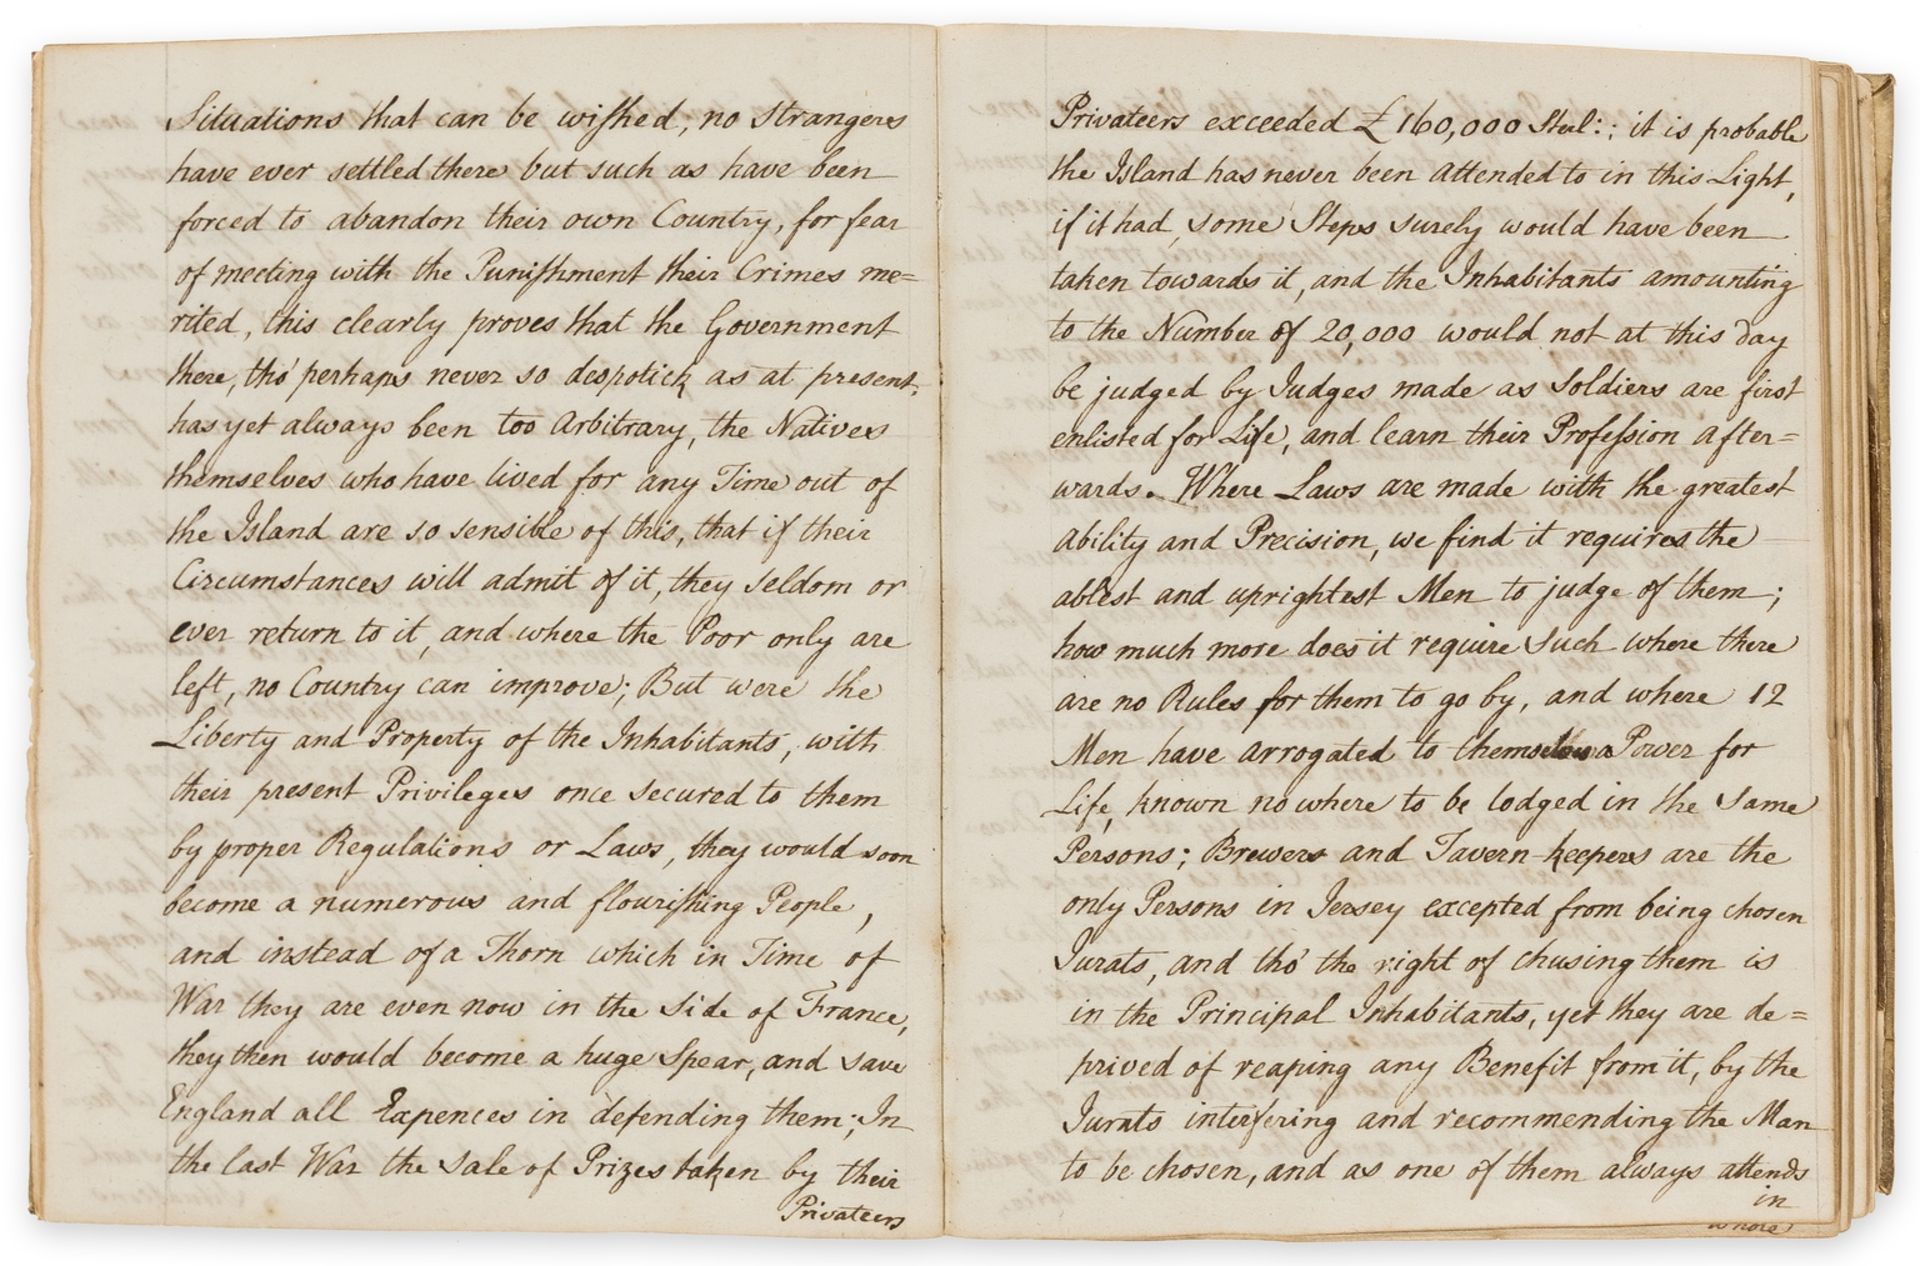 Situations that can be wished, no Strangers
have ever settled there but such as have been
forced to abandon their own Country, for fear
of meeting with the Punishment their Crimes me=
rited, this clearly proves that the Government
there, tho' perhaps never so despotick as at present,
has yet always been too Arbitrary, the Natives
themselves who have lived for any Time out of
the Island are so sensible of this, that if their
Circumstances will admit of it, they seldom or
ever return to it, and where the Poor only are
left, no Country can improve; But were the
Liberty and Property of the Inhabitants, with
their present Privileges once secured to them
by proper Regulations or Laws, they would soon
become a numerous and flourishing People,
and instead of a Thorn which in Time of
War they are even now in the Side of France,
they then would become a huge Spear, and save
England all Expences in defending them; In
the last War the Sale of Prizes taken by their
Privateers
Privateers exceeded £160,000 Sterl:; it is probable
the Island has never been attended to in this Light,
if it had, some Steps surely would have been
taken towards it, and the Inhabitants amounting
to the Number of 20,000 would not at this day
be judged by Judges made as Soldiers are first
enlisted for Life, and learn their Profession after=
wards. Where Laws are made with the greatest
ability and Precision, we find it requires the
ablest and uprightest Men to judge of them;
how much more does it require such where there
are no Rules for them to go by, and where 12
Men have arrogated to themselves a Power for
Life, known no where to be lodged in the same
Persons; Brewers and Tavern-keepers are the
only Persons in Jersey excepted from being chosen
Jurats, and tho' the right of chusing them is
in the Principal Inhabitants, yet they are de=
prived of reaping any Benefit from it, by the
Jurats interfering and recommending the Man
to be chosen, and as one of them always attends
in